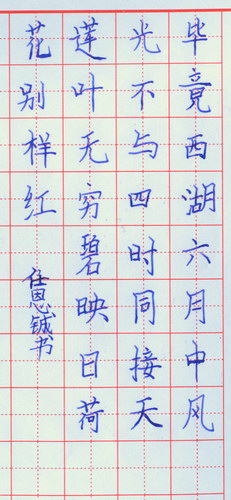 毕竟西湖六月中风
光不与四时同接天
莲叶无穷碧映日荷
花别样红
任恩铖书